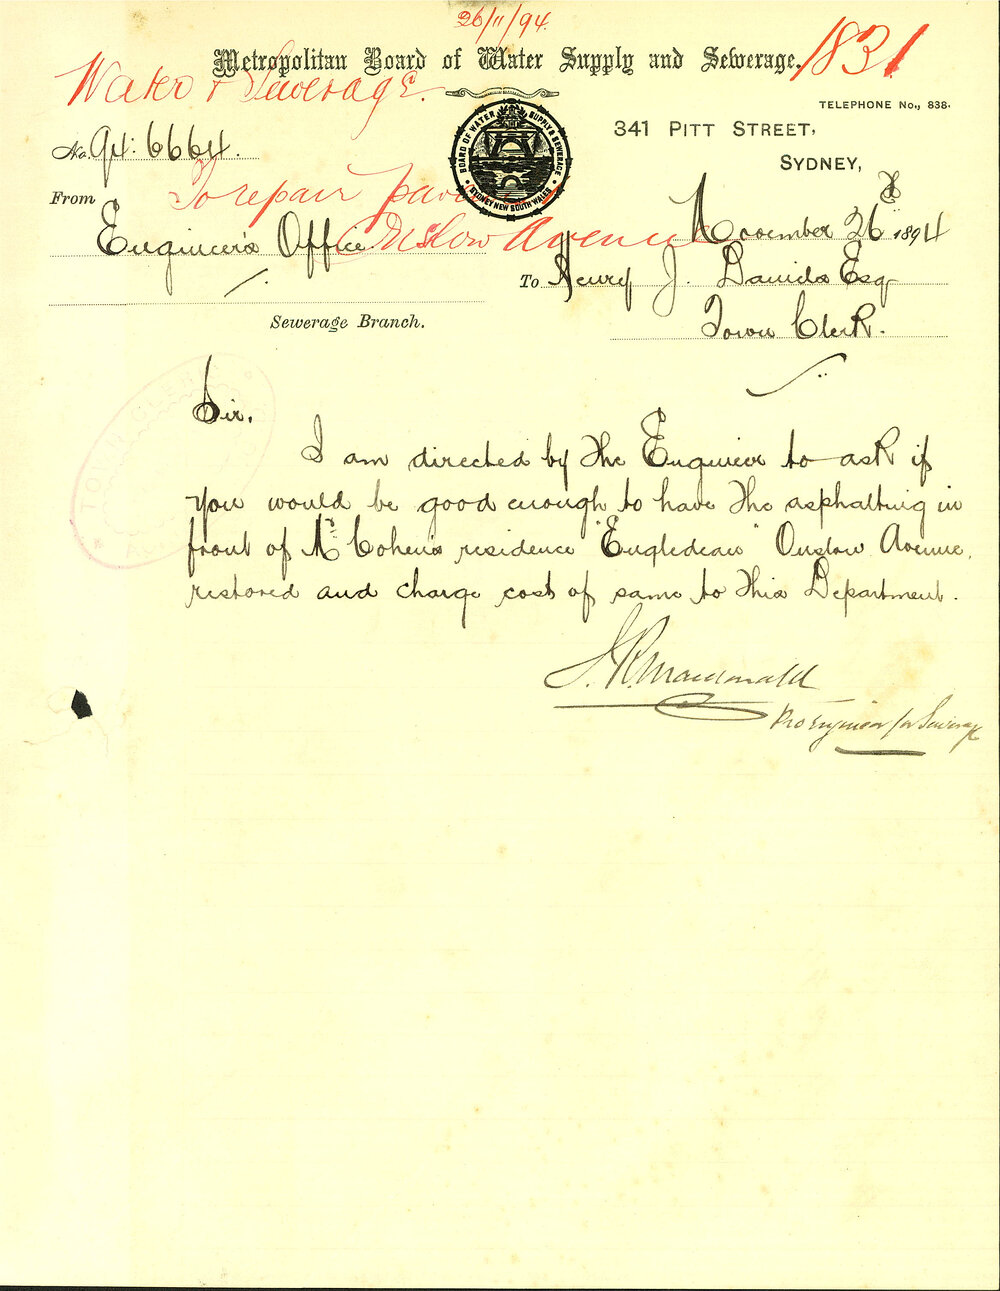 26/11/94.
Metropolitan Board of Water Supply and Sewerage.
1831
Water & Sewerage.
TELEPHONE No., 838.
341 PITT STREET,
SYDNEY,
BOARD OF WATER SUPPLY & SEWERAGE
SYDNEY NEW SOUTH WALES
No. 94: 6664.
To repair
Onslow Avenue
From
Engineer's Office
November 26th 1894
To Henry J. Daniels Esq
Town Clerk.
Sewerage Branch.
TOWN CLERK
Sir,
I am directed by the Engineer to ask if
you would be good enough to have the asphalting in
front of Mr Cohen's residence "Engledean" Onslow Avenue,
restored and charge cost of same to this Department.
J. R. Macdonald
Pro Engineer for Sewerage